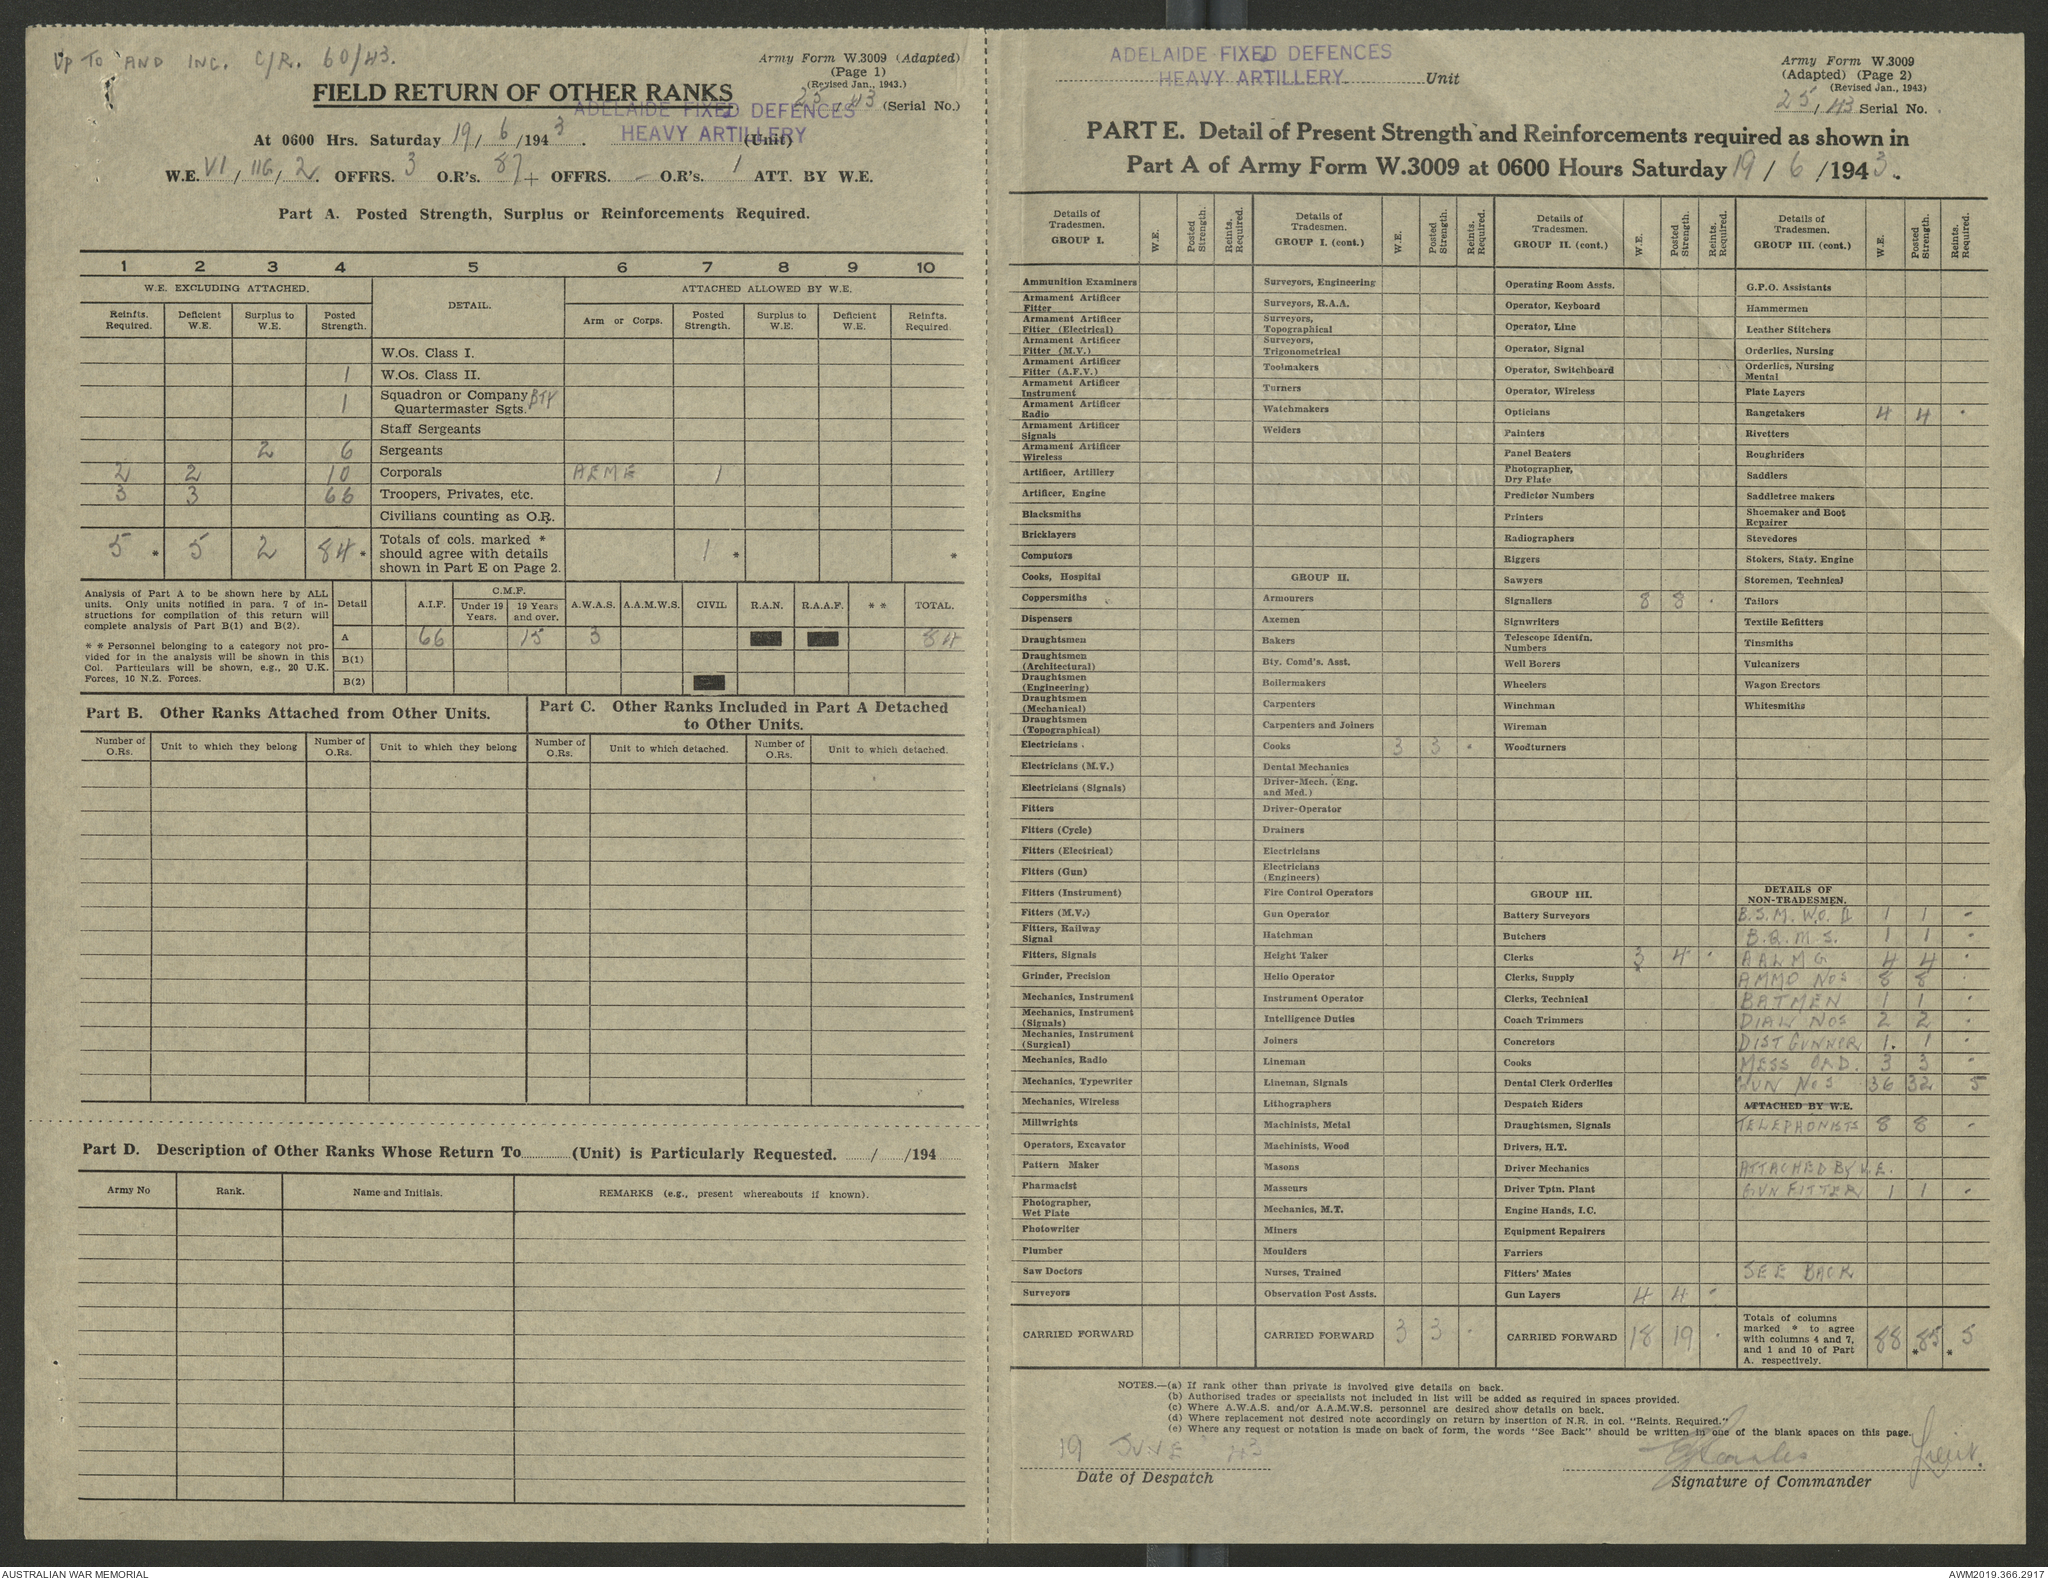 UP TO AND INC. C/R. 60/43.
Army Form W.3009 (Adapted)
(Page 1)
(Revised Jan., 1943.)
FIELD RETURN OF OTHER RANKS
25, 43 (Serial No.)
ADELAIDE FIXED DEFENCES
HEAVY ARTILLERY
At 0600 Hrs. Saturday 19/6/1943. (Unit)
W.E. VI, 116, 2. OFFRS. 3 O.R's. 87+ OFFRS. - O.R's. 1 ATT. BY W.E.
Part A. Posted Strength, Surplus or Reinforcements Required.
1 2 3 4 5 6 7 8 9 10
W.E. EXCLUDING ATTACHED. DETAIL. ATTACHED ALLOWED BY W.E.
Reinfts. Required. Deficient W.E. Surplus to W.E. Posted Strength. Arm or Corps. Posted Strength. Surplus to W.E. Deficient W.E. Reinfts. Required.
W.Os. Class I.
1 W.Os. Class II.
1 Squadron or Company BTY Quartermaster Sgts.
Staff Sergeants
2 6 Sergeants
2 2 10 Corporals AEME 1
3 3 66 Troopers, Privates, etc.
Civilians counting as O.R.
5 * 5 2 84 * Totals of cols. marked * should agree with details shown in Part E on Page 2. 1 * *
Analysis of Part A to be shown here by ALL units. Only units notified in para. 7 of instructions for compilation of this return will complete analysis of Part B(1) and B(2).
* * Personnel belonging to a category not provided for in the analysis will be shown in this Col. Particulars will be shown, e.g., 20 U.K. Forces, 10 N.Z. Forces.
Detail A.I.F. C.M.F. Under 19 Years. 19 Years and over. A.W.A.S. A.A.M.W.S. CIVIL R.A.N. R.A.A.F. * * TOTAL.
A 66 15 3 84
B(1)
B(2)
Part B. Other Ranks Attached from Other Units.
Number of O.Rs. Unit to which they belong Number of O.Rs. Unit to which they belong
Part C. Other Ranks Included in Part A Detached to Other Units.
Number of O.Rs. Unit to which detached. Number of O.Rs. Unit to which detached.
Part D. Description of Other Ranks Whose Return To (Unit) is Particularly Requested. / /194
Army No Rank. Name and Initials. REMARKS (e.g., present whereabouts if known).
ADELAIDE FIXED DEFENCES
HEAVY ARTILLERY Unit
Army Form W.3009
(Adapted) (Page 2)
(Revised Jan., 1943)
25, 43 Serial No.
PART E. Detail of Present Strength and Reinforcements required as shown in
Part A of Army Form W.3009 at 0600 Hours Saturday 19/6/1943.
Details of Tradesmen. GROUP I. W.E. Posted Strength. Reints. Required.
Ammunition Examiners
Armament Artificer Fitter
Armament Artificer Fitter (Electrical)
Armament Artificer Fitter (M.V.)
Armament Artificer Fitter (A.F.V.)
Armament Artificer Instrument
Armament Artificer Radio
Armament Artificer Signals
Armament Artificer Wireless
Artificer, Artillery
Artificer, Engine
Blacksmiths
Bricklayers
Computors
Cooks, Hospital
Coppersmiths
Dispensers
Draughtsmen
Draughtsmen (Architectural)
Draughtsmen (Engineering)
Draughtsmen (Mechanical)
Draughtsmen (Topographical)
Electricians
Electricians (M.V.)
Electricians (Signals)
Fitters
Fitters (Cycle)
Fitters (Electrical)
Fitters (Gun)
Fitters (Instrument)
Fitters (M.V.)
Fitters, Railway Signal
Fitters, Signals
Grinder, Precision
Mechanics, Instrument
Mechanics, Instrument (Signals)
Mechanics, Instrument (Surgical)
Mechanics, Radio
Mechanics, Typewriter
Mechanics, Wireless
Millwrights
Operators, Excavator
Pattern Maker
Pharmacist
Photographer, Wet Plate
Photowriter
Plumber
Saw Doctors
Surveyors
CARRIED FORWARD
Details of Tradesmen. GROUP I. (cont.) W.E. Posted Strength. Reints. Required.
Surveyors, Engineering
Surveyors, R.A.A.
Surveyors, Topographical
Surveyors, Trigonometrical
Toolmakers
Turners
Watchmakers
Welders
GROUP II.
Armourers
Axemen
Bakers
Bty. Comd's. Asst.
Boilermakers
Carpenters
Carpenters and Joiners
Cooks 3 3 -
Dental Mechanics
Driver-Mech. (Eng. and Med.)
Driver-Operator
Drainers
Electricians
Electricians (Engineers)
Fire Control Operators
Gun Operator
Hatchman
Height Taker
Helio Operator
Instrument Operator
Intelligence Duties
Joiners
Lineman
Lineman, Signals
Lithographers
Machinists, Metal
Machinists, Wood
Masons
Masseurs
Mechanics, M.T.
Miners
Moulders
Nurses, Trained
Observation Post Assts.
CARRIED FORWARD 3 3 -
Details of Tradesmen. GROUP II. (cont.) W.E. Posted Strength. Reints. Required.
Operating Room Assts.
Operator, Keyboard
Operator, Line
Operator, Signal
Operator, Switchboard
Operator, Wireless
Opticians
Painters
Panel Beaters
Photographer, Dry Plate
Predictor Numbers
Printers
Radiographers
Riggers
Sawyers
Signallers 8 8 -
Signwriters
Telescope Identfn. Numbers
Well Borers
Wheelers
Winchman
Wireman
Woodturners
GROUP III.
Battery Surveyors
Butchers
Clerks 3 4 -
Clerks, Supply
Clerks, Technical
Coach Trimmers
Concretors
Cooks
Dental Clerk Orderlies
Despatch Riders
Draughtsmen, Signals
Drivers, H.T.
Driver Mechanics
Driver Tptn. Plant
Engine Hands, I.C.
Equipment Repairers
Farriers
Fitters' Mates
Gun Layers 4 4 -
CARRIED FORWARD 18 19 -
Details of Tradesmen. GROUP III. (cont.) W.E. Posted Strength. Reints. Required.
G.P.O. Assistants
Hammermen
Leather Stitchers
Orderlies, Nursing
Orderlies, Nursing Mental
Plate Layers
Rangetakers 4 4 -
Rivetters
Roughriders
Saddlers
Saddletree makers
Shoemaker and Boot Repairer
Stevedores
Stokers, Staty. Engine
Storemen, Technical
Tailors
Textile Refitters
Tinsmiths
Vulcanizers
Wagon Erectors
Whitesmiths
DETAILS OF NON-TRADESMEN.
B.S.M. W.O. II 1 1 -
B.Q.M.S. 1 1 -
AALMG 4 4 -
AMMO NOS 8 8 -
BATMEN 1 1 -
DIAL NOS 2 2 -
DIST GUNNER 1. 1 -
MESS ORD. 3 3 -
GUN NOS 36 32 5
ATTACHED BY W.E.
TELEPHONISTS 8 8 -
ATTACHED BY W.E.
GUN FITTER 1 1 -
SEE BACK
Totals of columns marked * to agree with columns 4 and 7, and 1 and 10 of Part A. respectively. 88 *85 * 5
NOTES.—(a) If rank other than private is involved give details on back.
(b) Authorised trades or specialists not included in list will be added as required in spaces provided.
(c) Where A.W.A.S. and/or A.A.M.W.S. personnel are desired show details on back.
(d) Where replacement not desired note accordingly on return by insertion of N.R. in col. "Reints. Required."
(e) Where any request or notation is made on back of form, the words "See Back" should be written in one of the blank spaces on this page.
19 JUNE 43
Date of Despatch
Lieut.
Signature of Commander
AUSTRALIAN WAR MEMORIAL
AWM2019.366.2917